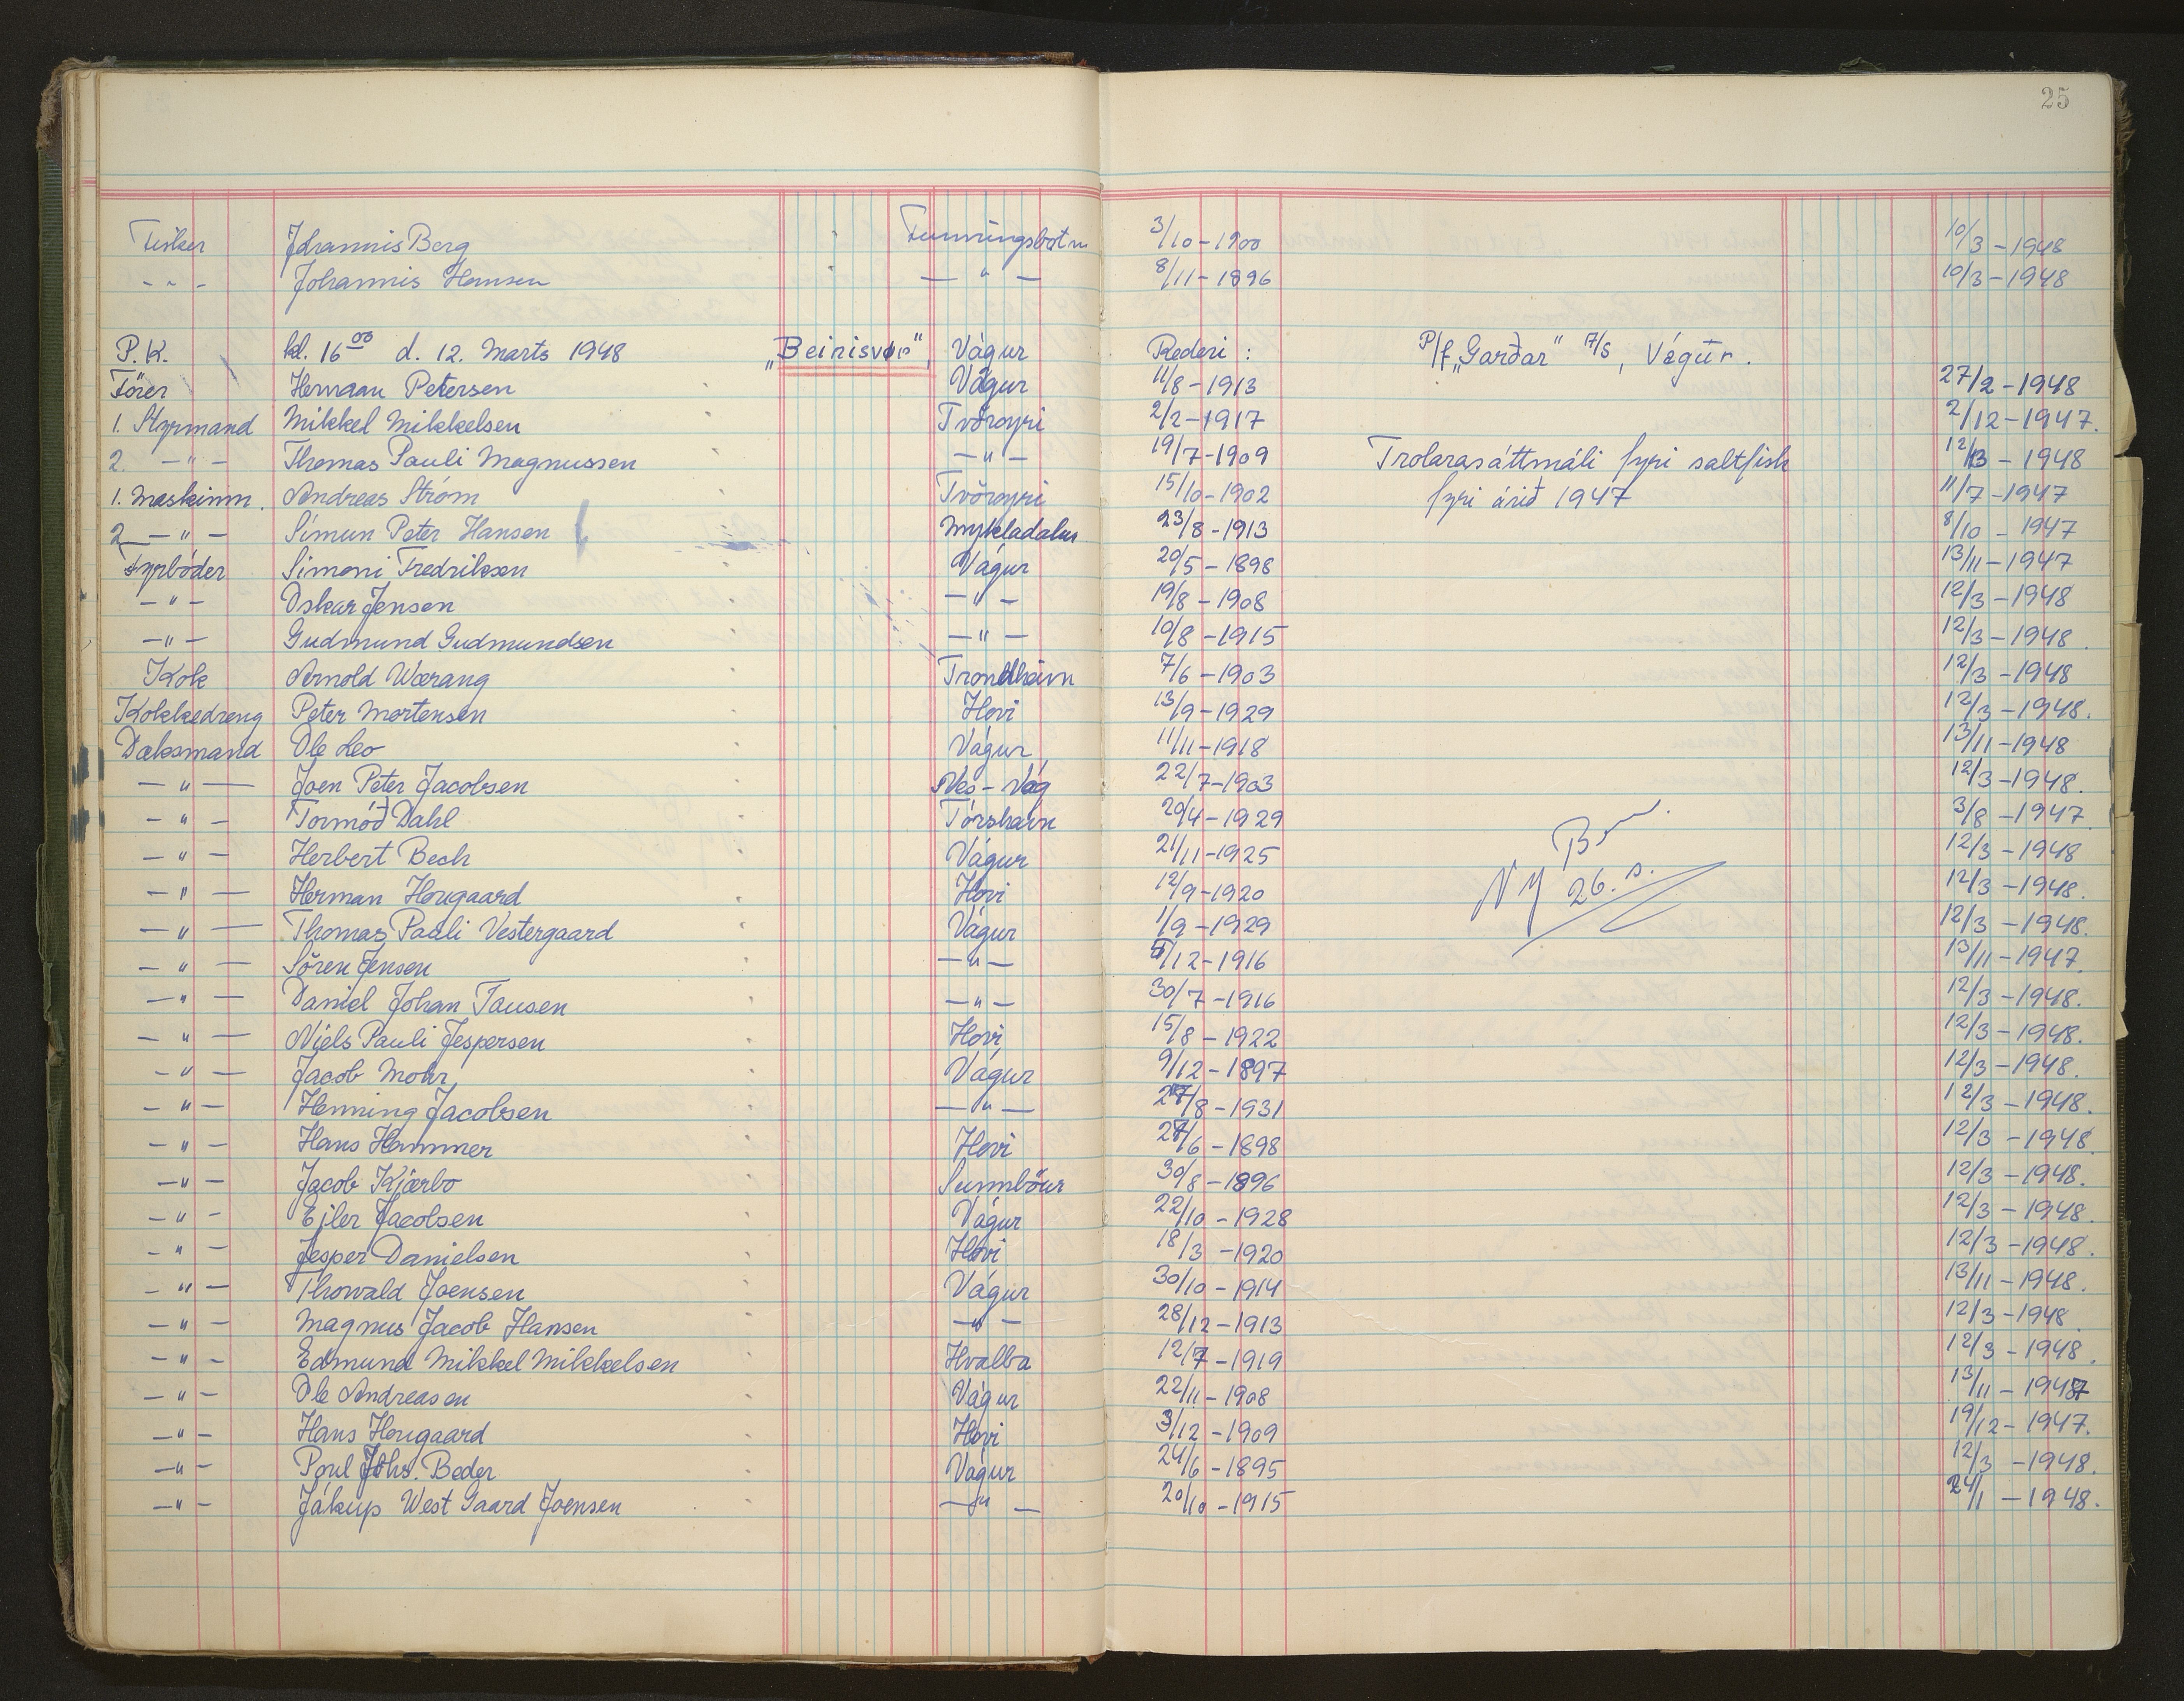 25
Fisker Jóhannis Berg Funningsbotn 3/10-1900 10/3-1948
- " - Johannis Hansen — " — 8/11-1896 10/3-1948
P.K. kl. 16 00 d. 12. Marts 1948 „Beinisvør", Vágur Rederi: P/f „Garðar" A/S, Vágur.
Förer Herman Petersen Vágur 11/8-1913 27/2-1948
1. Styrmand Mikkel Mikkelsen Tvöroyri 2/2-1917 2/12-1947.
2. — " — Thomas Pauli Magnussen — " — 19/7-1909 Trolarasáttmáli fyri saltfisk 12/3-1948
1. Maskinm. Andreas Ström Tvöroyri 15/10-1902 fyri árið 1947 11/7-1947
2 — " — Símun Peter Hansen Mykladalur 23/8-1913 8/10-1947
Fyrböder Simoni Fredriksen Vágur 20/5-1898 13/11-1947
— " — Oskar Jensen — " — 19/8-1908 12/3-1948
— " — Gudmund Gudmundsen — " — 10/8-1915 12/3-1948.
Kok Arnold Wærang Trondhavn 7/6-1903 12/3-1948
Kokkedreng Peter Mortensen Hovi 13/9-1929 12/3-1948.
Dæksmand Ole Leo Vágur 11/11-1918 13/11-1948
— " — Joen Peter Jacobsen Nes-Vág 22/7-1903 12/3-1948.
— " — Tormóð Dahl Tórshavn 20/4-1929 3/8-1947
— " — Herbert Bech Vágur 21/11-1925 12/3-1948
— " — Herman Hougaard Hovi 12/9-1920 26. s. 12/3-1948.
— " — Thomas Pauli Vestergaard Vágur 1/9-1929 12/3-1948.
— " — Sören Jensen — " — 5/12-1916 13/11-1947.
— " — Daniel Johan Tausen — " — 30/7-1916 12/3-1948.
— " — Niels Pauli Jespersen Hovi 15/8-1922 12/3-1948.
— " — Jacob Mohr Vágur 9/12-1897 12/3-1948.
— " — Henning Jacobsen — " — 27/8-1931 12/3-1948.
— " — Hans Hammer Hovi 27/6-1898 12/3-1948.
— " — Jacob Kjærbo Sumböur 30/8-1896 12/3-1948.
— " — Ejler Jacobsen Vágur 22/10-1928 12/3-1948.
— " — Jesper Danielsen Hovi 18/3-1920 12/3-1948.
— " — Thorvald Joensen Vágur 30/10-1914 13/11-1948.
— " — Magnus Jacob Hansen — " — 28/12-1913 12/3-1948.
— " — Edmund Mikkel Mikkelsen Hvalba 12/7-1919 12/3-1948.
— " — Ole Andreasen Vágur 22/11-1908 13/11-1947
— " — Hans Hougaard Hovi 3/12-1909 19/12-1947.
— " — Poul Johs. Beder Vágur 24/6-1895 12/3-1948.
— " — Jákup West Gaard Joensen — " — 20/10-1915 24/1-1948.